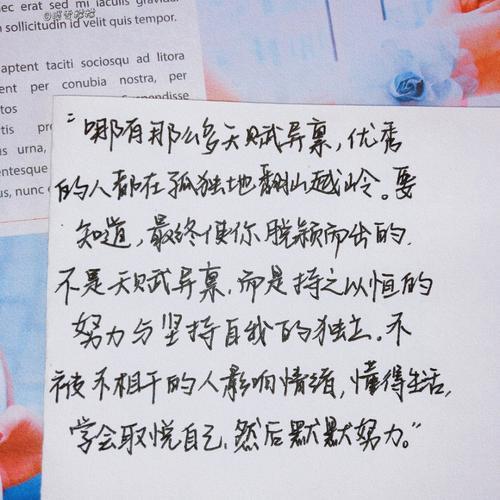 ec erat sed mi iaculis gravida
sollicitudin id velit quis tempor.
aptent taciti sociosqu ad litora
ent per conubia nostra, per
tos
tis
Suspendisse
urna,
entesque
us, nunc
"哪有那么多天赋异禀,优秀
的人都在孤独地翻山越岭。要
知道,最终使你脱颖而出的,
不是天赋异禀,而是持之以恒的
努力与坚持自我的独立。不
被不相干的人影响情绪,懂得生活,
学会取悦自己,然后默默努力。"